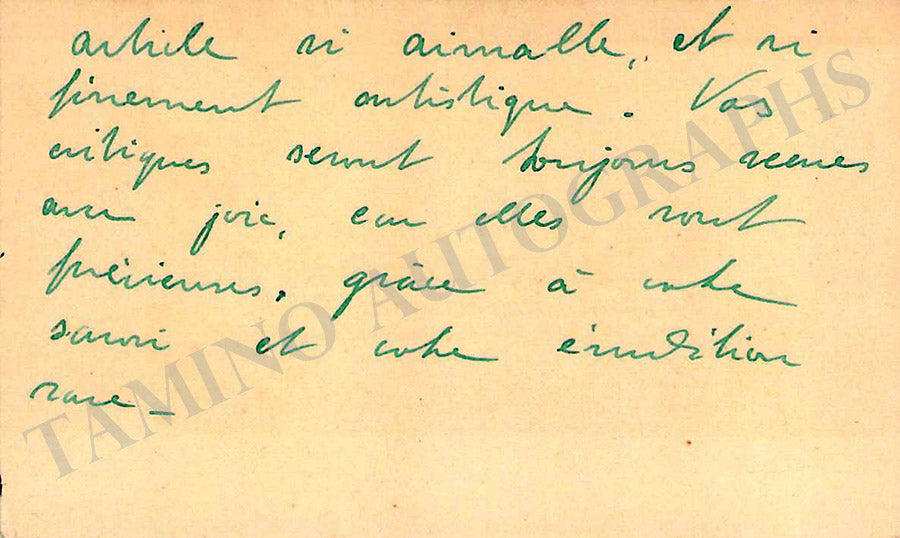 article si aimable, et si
finement artistique. Vos
critiques seront toujours reçues
avec joie, car elles sont
précieuses, grâce à votre
savoir et votre érudition
rare –
TAMINO AUTOGRAPHS